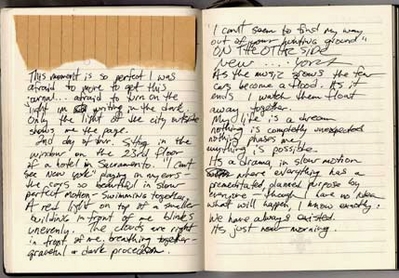 This moment is so perfect I was
afraid to move to get this
journal... afraid to turn on the
light or writing in the dark.
Only the light of the city outside
shows me the page.
2nd day of tour. Sitting in the
window on the 23rd floor
of a hotel in Sacramento. "I Can't
See New York" playing in my ears -
the cars so beautiful in slow
perfect motion - swimming together
A red light on top of a smaller
building in front of me blinks
unevenly. The clouds are right
in front of me, breathing together
graceful & dark procession.
I can't seem to find my way
out of your hunting ground"
ON THE OTHER SIDE
New .... York
As the music grows the few
cars become a flood. As it
ends I watch them float
away together.
My life is a dream
nothing is completely unexpected
nothing phases me.
anything is possible.
It's a drama, in slow motion
where everything has a
premeditated, planned purpose by
someone - though I have no idea
what will happen, I know exactly.
We have always existed.
It's just now morning.